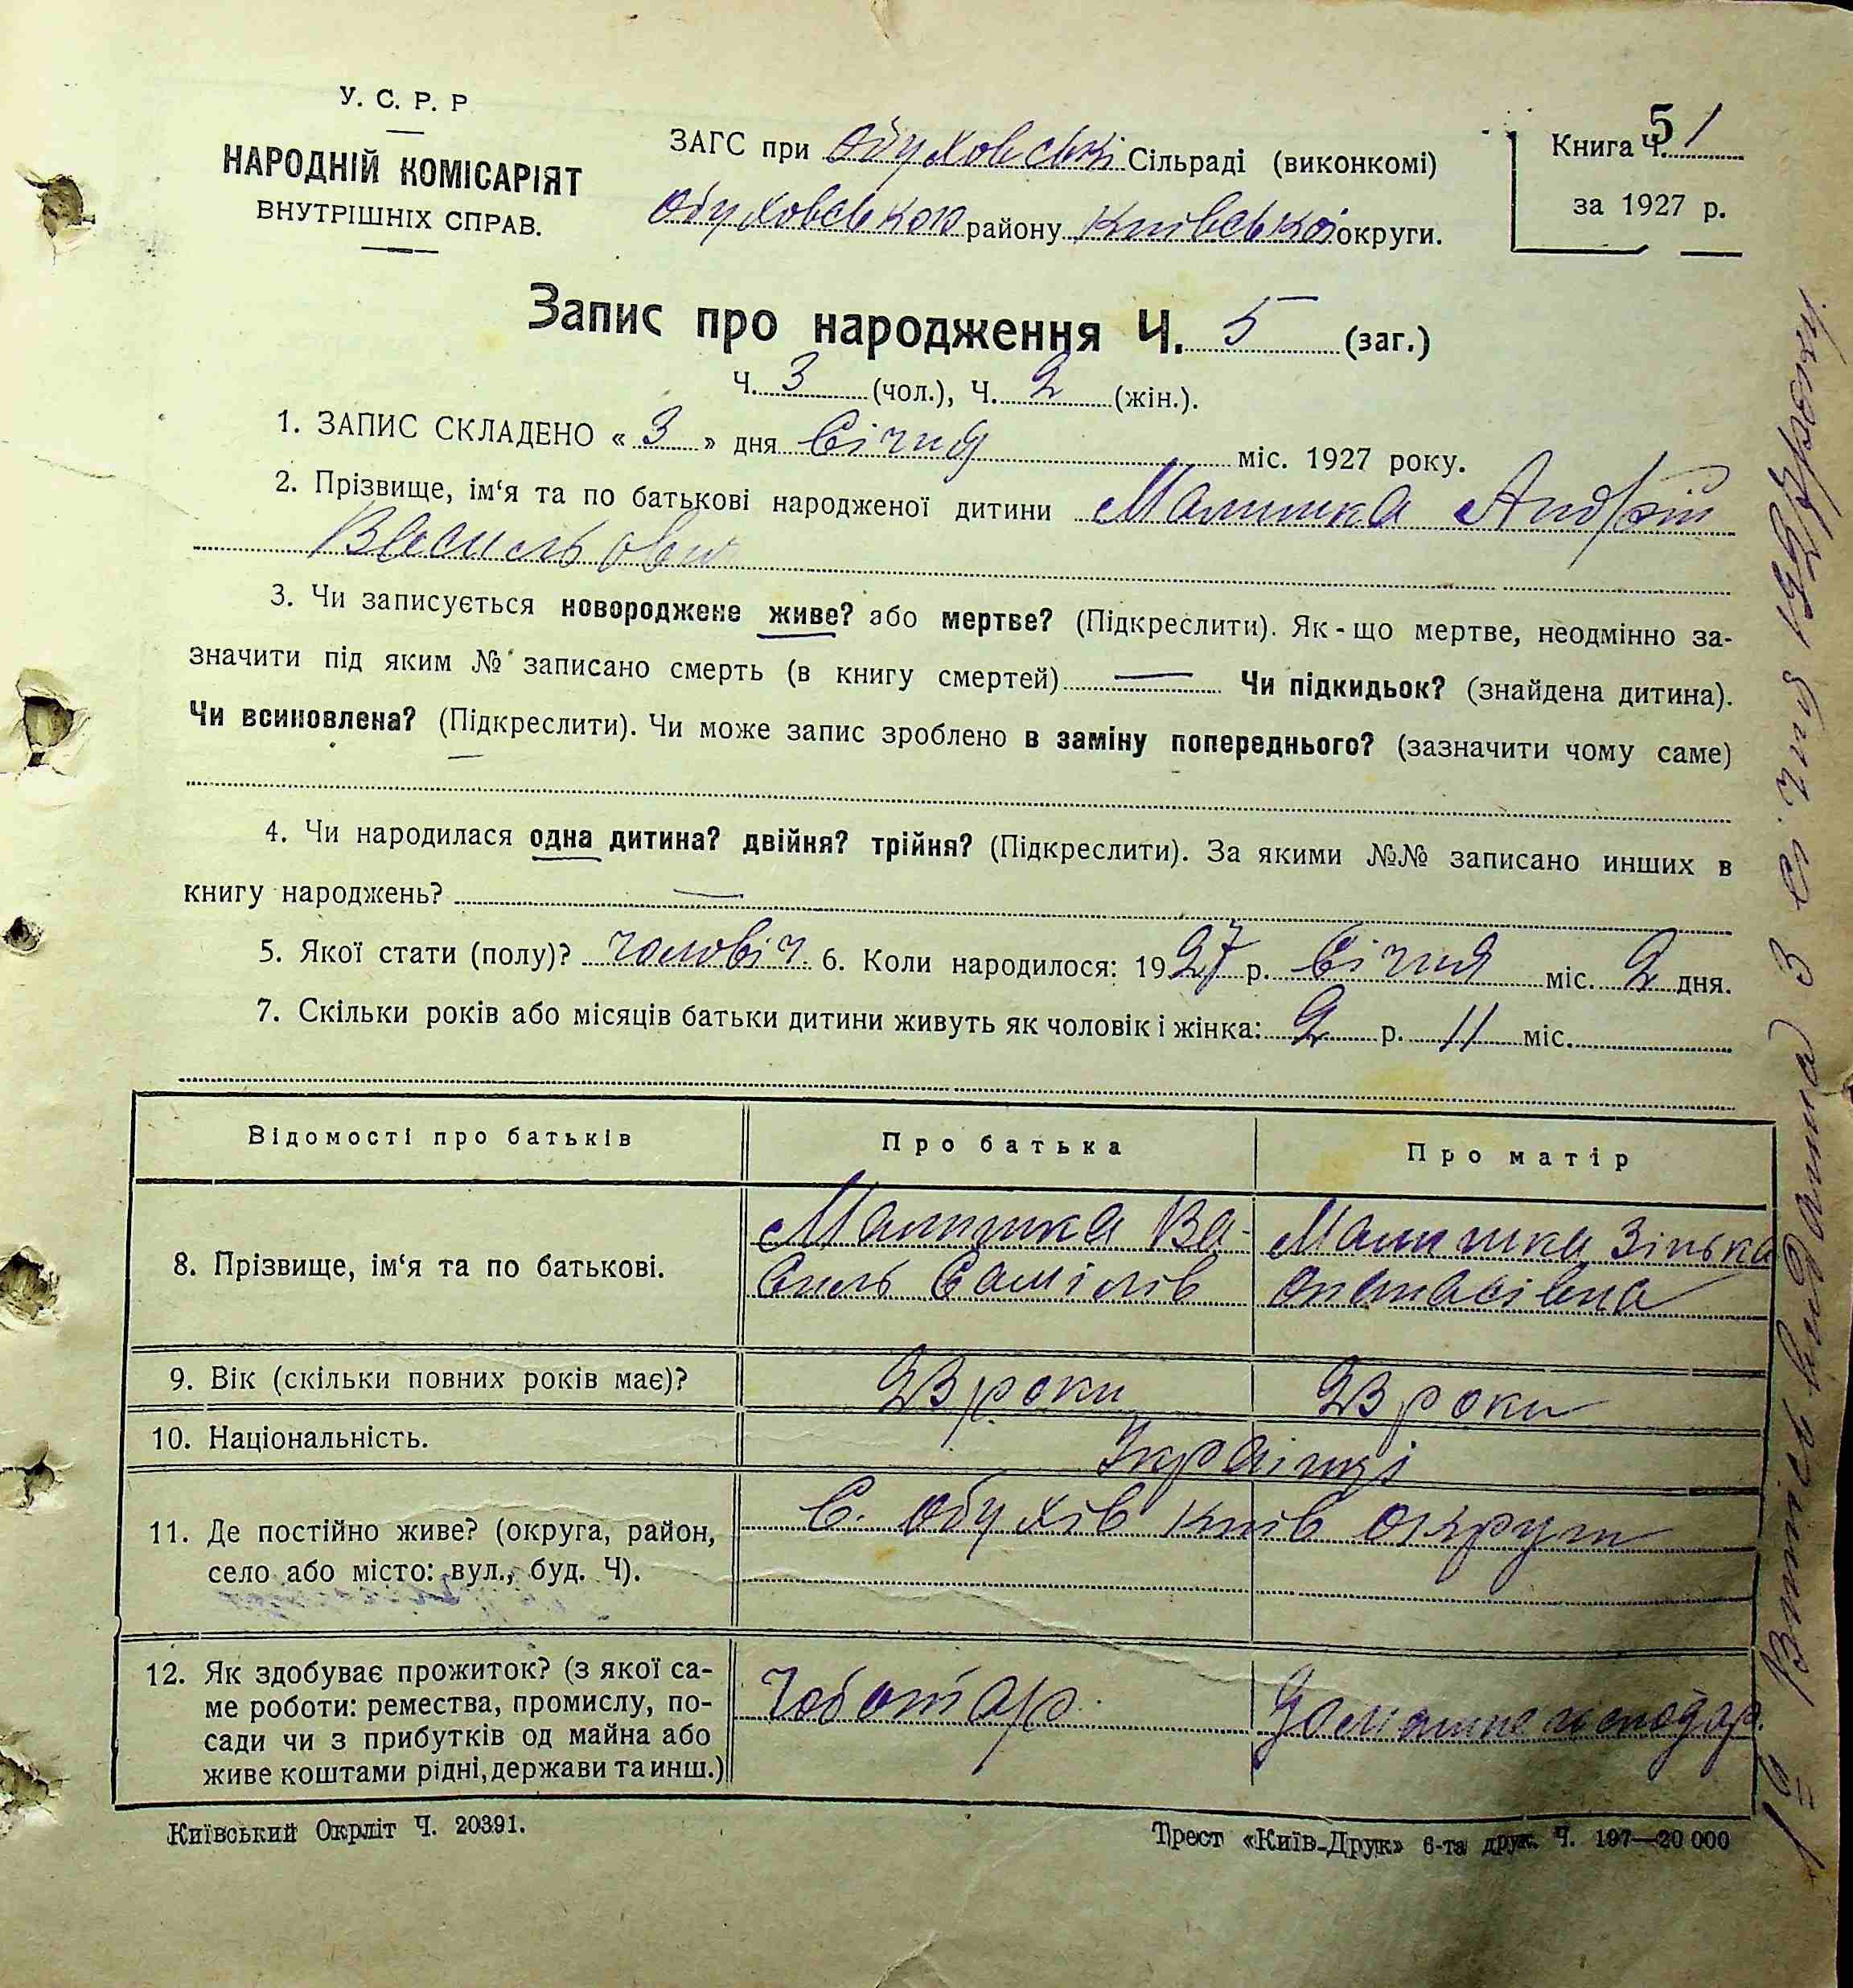 У. С. Р. Р
НАРОДНІЙ КОМІСАРІЯТ
ВНУТРІШНІХ СПРАВ.
ЗАГС при Обуховські Сільраді (виконкомі)
Обуховською району Київської округи.
Книга Ч. 1
5
за 1927 р.
Запис про народження Ч. 5 (заг.)
Ч. 3 (чол.), Ч. 2 (жін.).
1. ЗАПИС СКЛАДЕНО « 3 » дня Січня міс. 1927 року.
2. Прізвище, ім‘я та по батькові народженої дитини Малишка Андрій
Васильович
3. Чи записується новороджене живе? або мертве? (Підкреслити). Як-що мертве, неодмінно за-
значити під яким № записано смерть (в книгу смертей) — Чи підкидьок? (знайдена дитина).
Чи всиновлена? (Підкреслити). Чи може запис зроблено в заміну попереднього? (зазначити чому саме)
4. Чи народилася одна дитина? двійня? трійня? (Підкреслити). За якими №№ записано инших в
книгу народжень? —
5. Якої стати (полу)? чоловіч. 6. Коли народилося: 1927 р. Січня міс. 2 дня.
7. Скільки років або місяців батьки дитини живуть як чоловік і жінка: 2 р. 11 міс.
Відомості про батьків Про батька Про матір
8. Прізвище, ім‘я та по батькові. Малишка Ва- Малишка Зінька
силь Самілів Опанасівна
9. Вік (скільки повних років має)? 23 роки 23 роки
10. Національність. Українці
11. Де постійно живе? (округа, район, С. Обухів Київ округи
село або місто: вул., буд. Ч).
12. Як здобуває прожиток? (з якої са- Чоботар. Домашнє господар.
ме роботи: ремества, промислу, по-
сади чи з прибутків од майна або
живе коштами рідні, держави та инш.)
Київський Окрліт Ч. 20391.
Трест «Київ-Друк» 6-та друк. Ч. 197—20 000
Випись видана 3 січня 1927 року.